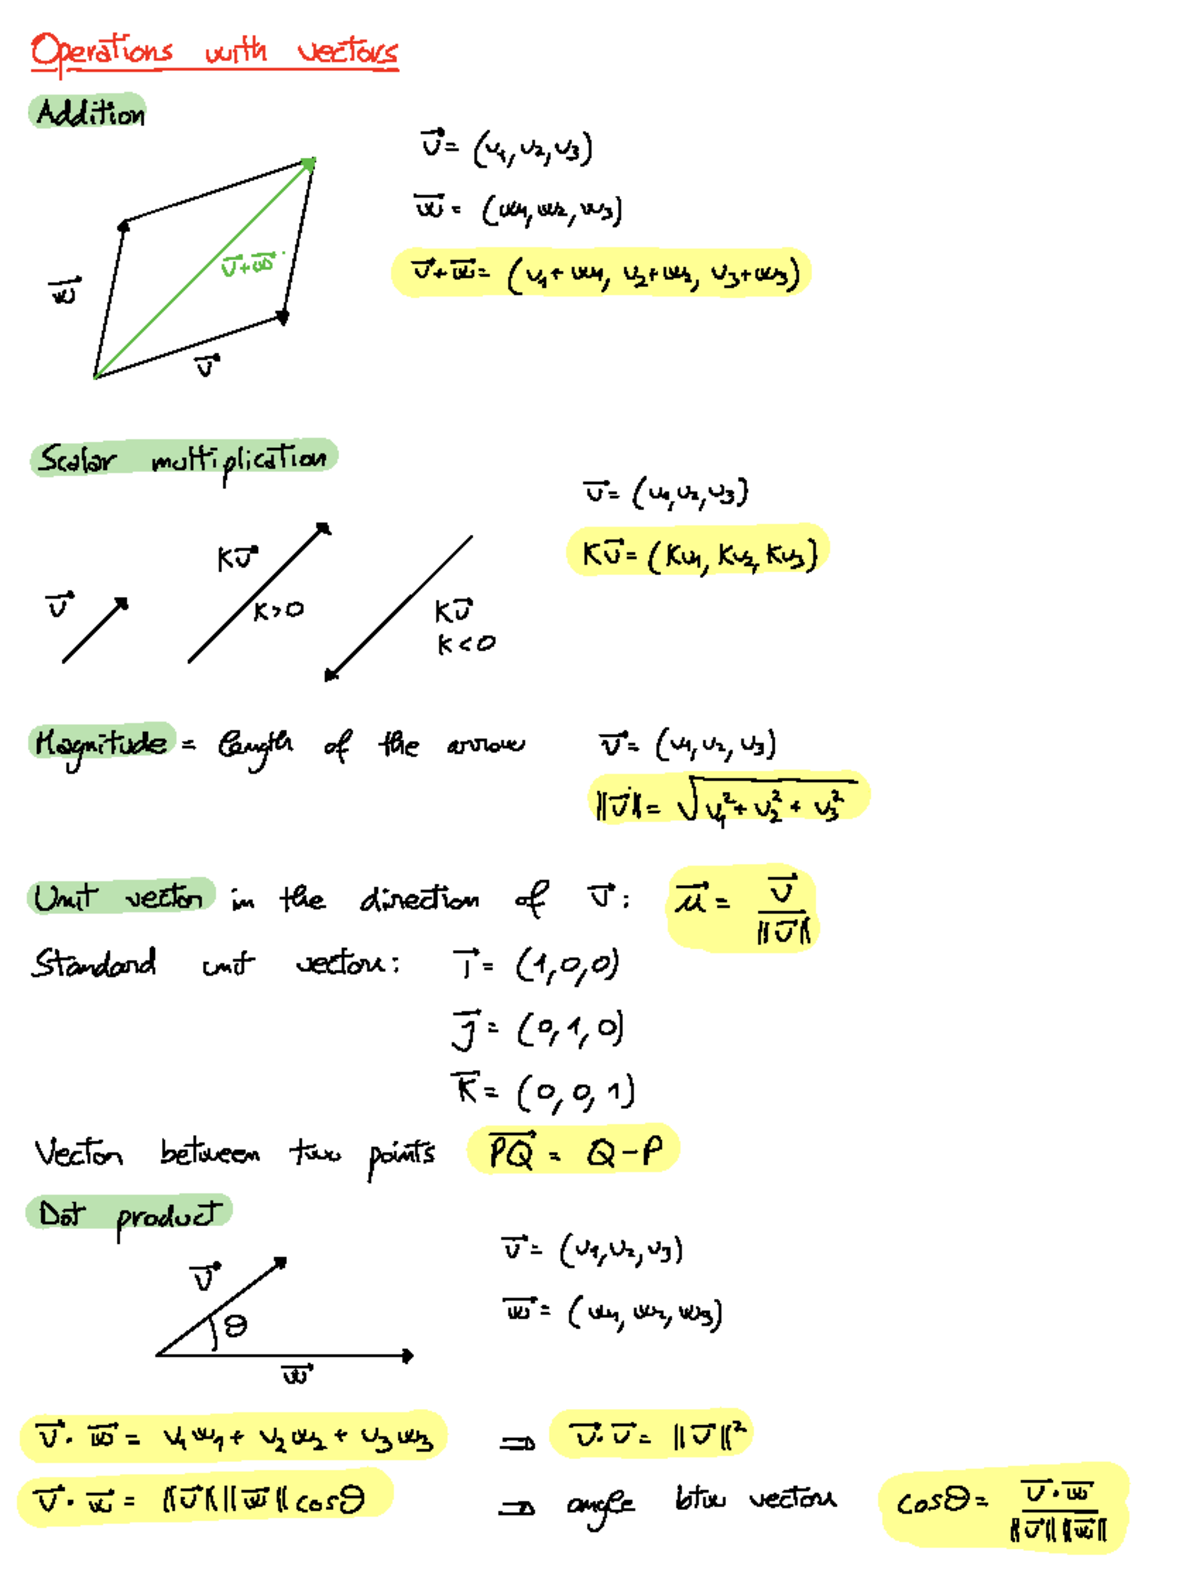 Operations with vectors
Addition
v⃗ = (v₁, v₂, v₃)
w⃗ = (w₁, w₂, w₃)
v⃗+w⃗
v⃗+w⃗ = (v₁+w₁, v₂+w₂, v₃+w₃)
w⃗
v⃗
Scalar multiplication
v⃗ = (v₁, v₂, v₃)
Kv⃗
Kv⃗ = (Kv₁, Kv₂, Kv₃)
v⃗
K>0
Kv⃗
K<0
Magnitude = length of the arrow v⃗ = (v₁, v₂, v₃)
||v⃗|| = √(v₁² + v₂² + v₃²)
Unit vector in the direction of v⃗: u⃗ = v⃗/||v⃗||
Standard unit vectors: i⃗ = (1,0,0)
j⃗ = (0,1,0)
K⃗ = (0,0,1)
Vector between two points PQ⃗ = Q-P
Dot product
v⃗ = (v₁, v₂, v₃)
v⃗
θ
w⃗ = (w₁, w₂, w₃)
w⃗
v⃗ · w⃗ = v₁w₁ + v₂w₂ + v₃w₃ ⇒ v⃗·v⃗ = ||v⃗||²
v⃗ · w⃗ = ||v⃗|| ||w⃗|| cosθ ⇒ angle btw vectors cosθ = v⃗·w⃗/||v⃗|| ||w⃗||